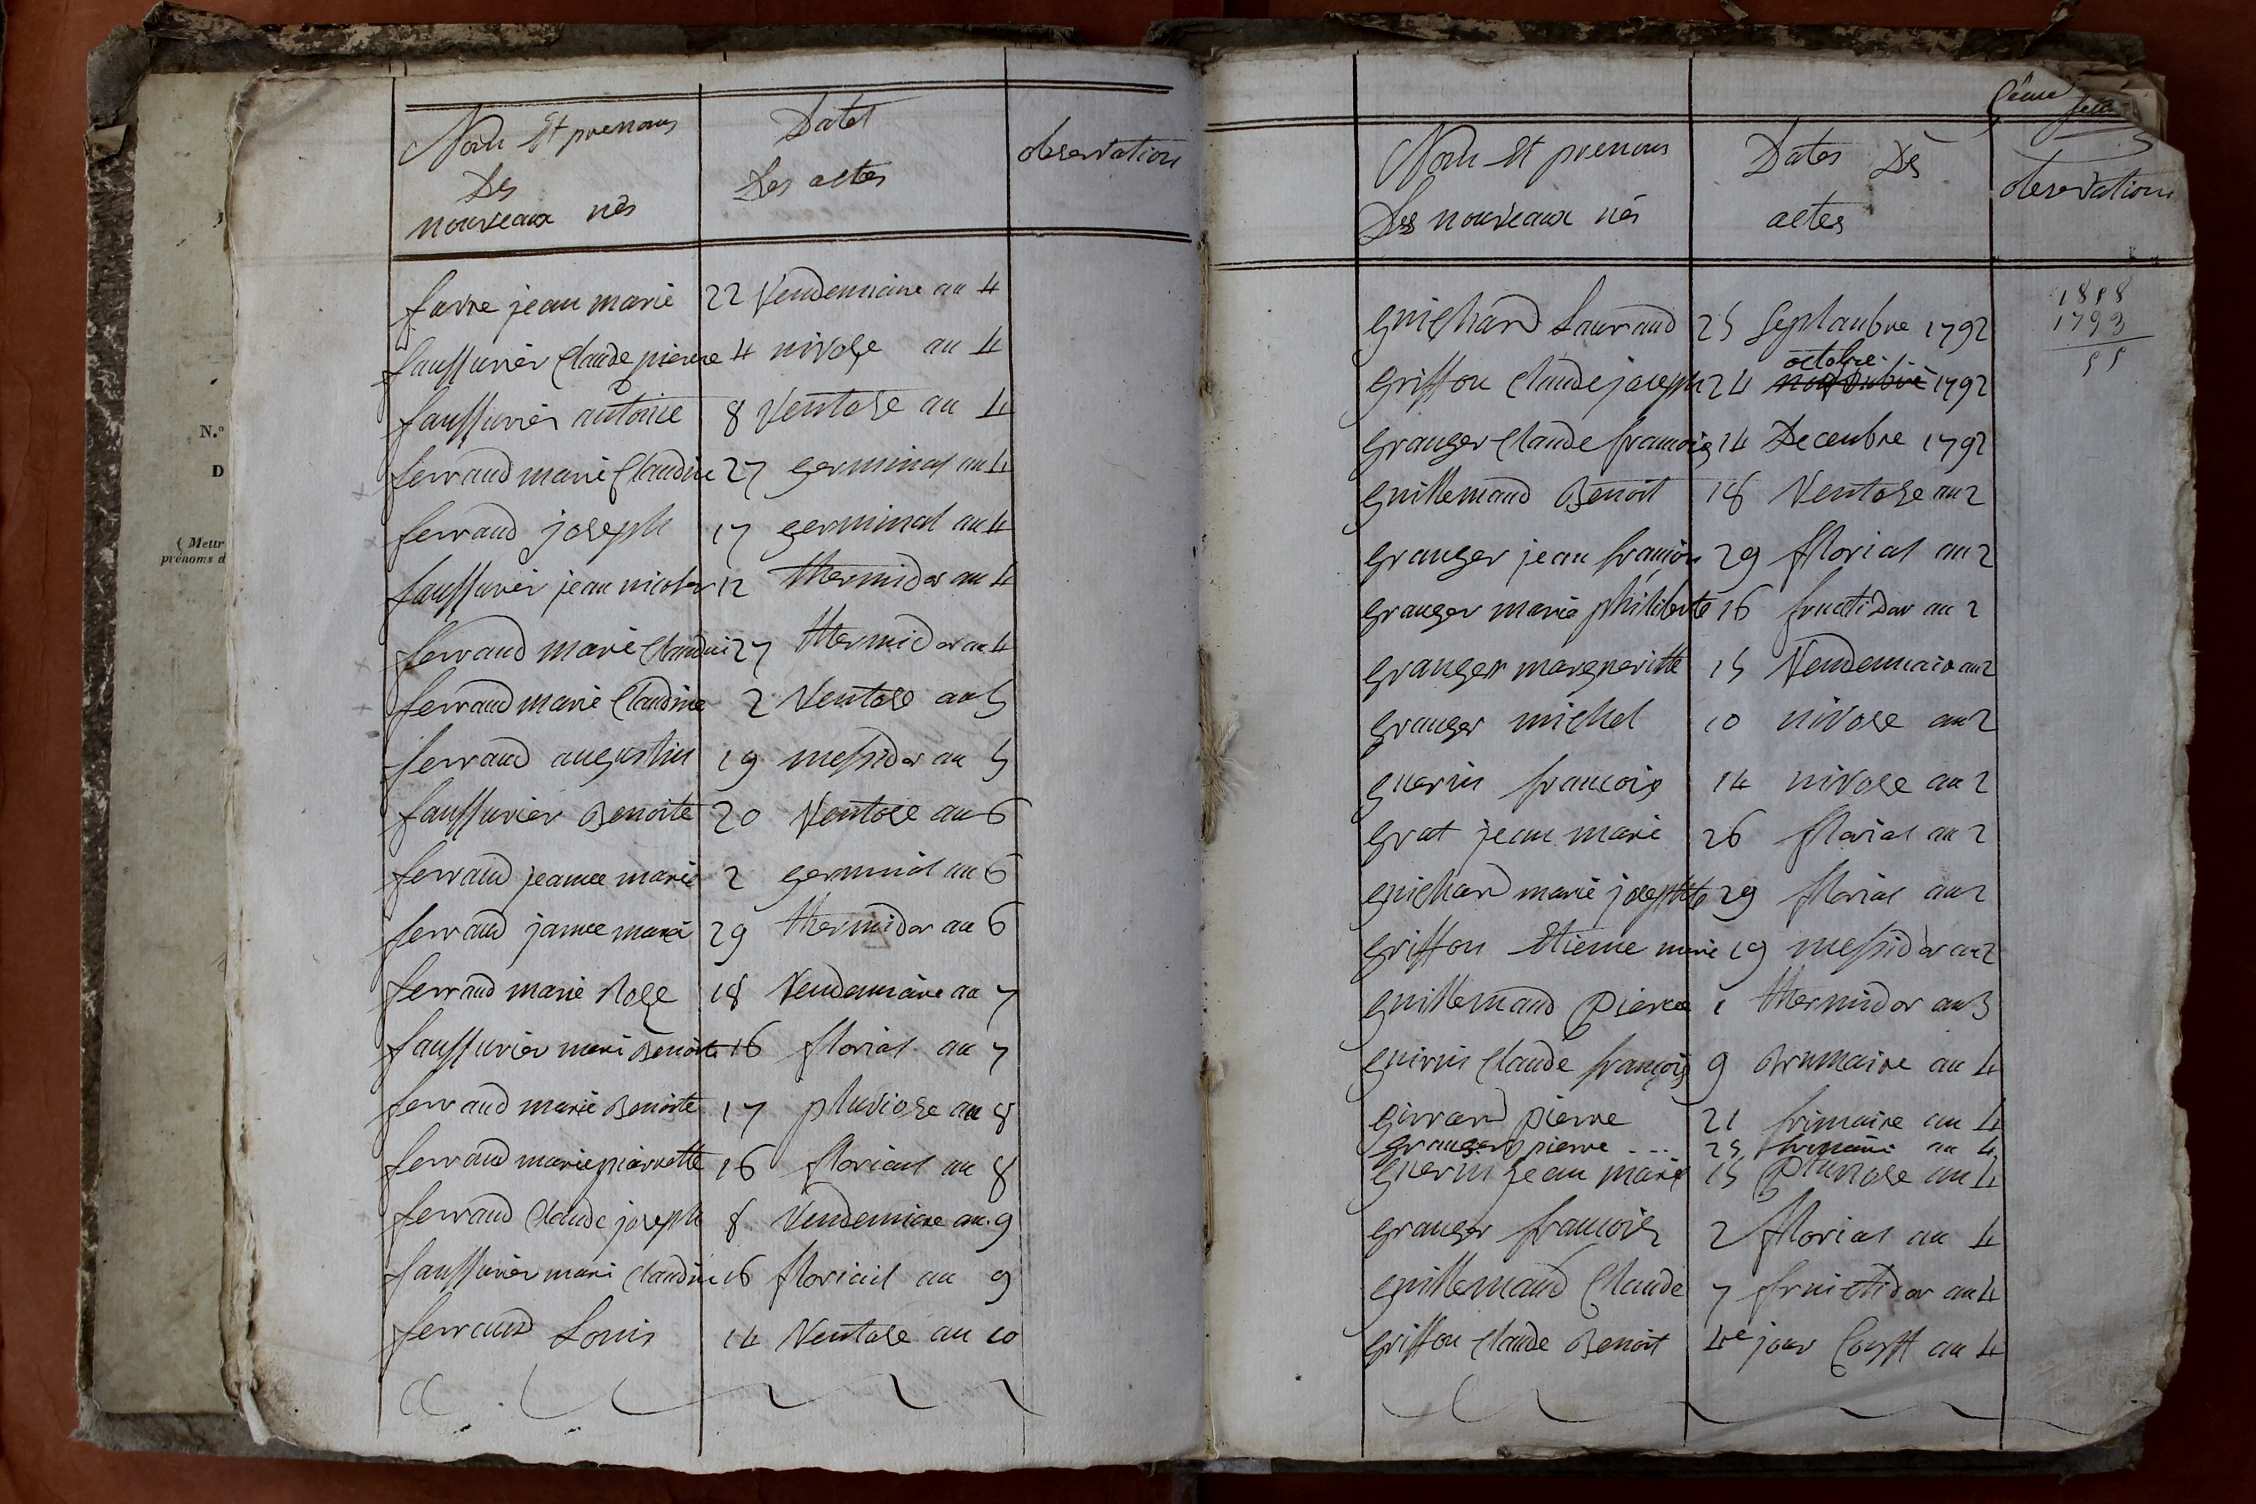 N.°
D
( Mettr
prénoms d
Nom Et prenoms
Des
nouveaux nés
Dates
Des actes
observation
favre jean marie 22 Vendemiaire an 4
faussurier Claude pierre 4 nivose an 4
faussurier antoine 8 Ventose an 4
ferraud marie Claudine 27 germinal an 4
ferraud joseph 17 germinal an 4
faussurier jean nicolas 12 thermidor an 4
ferraud marie Claudine 27 thermidor an 4
ferraud marie Claudine 2 Ventose an 5
ferraud augustin 19 messidor an 5
faussurier Benoite 20 Ventose an 6
ferraud jeanne marie 2 germinal an 6
ferraud janne marie 29 thermidor an 6
ferraud marie Rose 18 Vendemiaire an 7
faussurier marie Benoite 16 florial an 7
ferraud marie Benoite 17 pluviose an 8
ferraud marie pierrette 16 florial an 8
ferraud Claude joseph 8 Vendemiaire an 9
faussurier marie Claudine 16 florial an 9
ferraud Louis 14 Ventose an 10
Nom Et prenoms
Des nouveaux nés
Dates Des
actes
observations
guichard Laurand 25 Septembre 1792
octobre
griffon Claude joseph 24 novembre 1792
granger Claude francois 14 Decembre 1792
guillemaud Benoit 18 Ventose an 2
granger jean francois 29 florial an 2
granger marie philiberte 16 fructidor an 2
granger margueritte 15 Vendemiaire an 2
granger michel 10 nivose an 2
guerin francois 14 nivose an 2
grat jean marie 26 florial an 2
guichard marie josephte 29 florial an 2
griffon Etienne marie 19 messidor an 2
guillemaud pierre 1 thermidor an 3
guirin Claude françois 9 Brumaire an 4
girrard pierre 21 frimaire an 4
granger pierre 25 frimaire an 4
guerin jean marie 15 pluviose an 4
granger francois 2 florial an 4
guillemaud Claude 7 fruictidor an 4
griffon Claude Benoit 4e jour Compt an 4
1818
1793